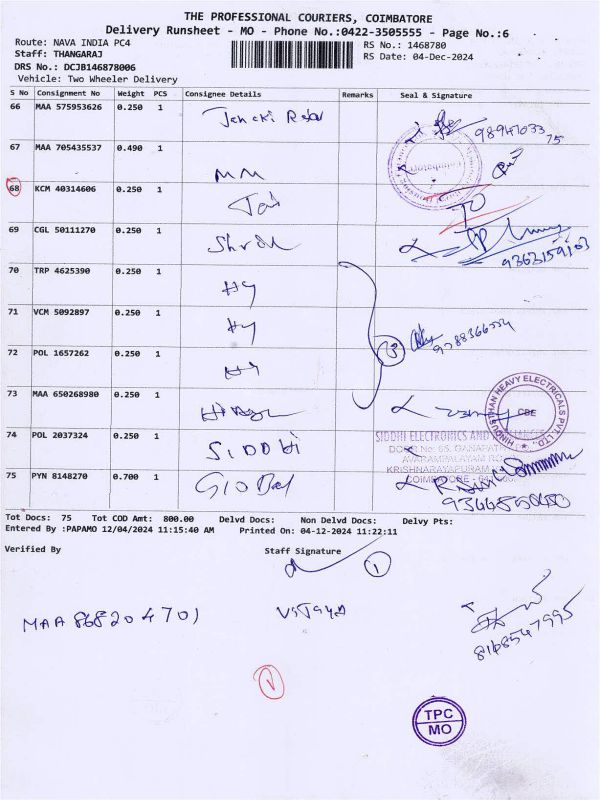 THE PROFESSIONAL COURIERS, COIMBATORE
Delivery Runsheet - MO - Phone No.:0422-3505555 - Page No.:6
Route: NAVA INDIA PC4 RS No.: 1468780
Staff: THANGARAJ RS Date: 04-Dec-2024
DRS No.: DCJB146878006
Vehicle: Two Wheeler Delivery
S No Consignment No Weight PCS Consignee Details Remarks Seal & Signature
66 MAA 575953626 0.250 1
67 MAA 705435537 0.490 1 MM
68 KCM 40314606 0.250 1
69 CGL 50111270 0.250 1
9363159163
70 TRP 4625390 0.250 1 HY
71 VCM 5092897 0.250 1 HY
72 POL 1657262 0.250 1 HY
73 MAA 650268980 0.250 1
HINDUSTHAN HEAVY ELECTRICALS PVT. LTD., CBE
74 POL 2037324 0.250 1 SIDDHI
SIDDHI ELECTRONICS AND
KRISHNARAYAPURAM
COIMBATORE
75 PYN 8148270 0.700 1 Global
Tot Docs: 75 Tot COD Amt: 800.00 Delvd Docs: Non Delvd Docs: Delvy Pts:
Entered By :PAPAMO 12/04/2024 11:15:40 AM Printed On: 04-12-2024 11:22:11
Verified By Staff Signature
1
MAA 868204701
8168547995
TPC
MO